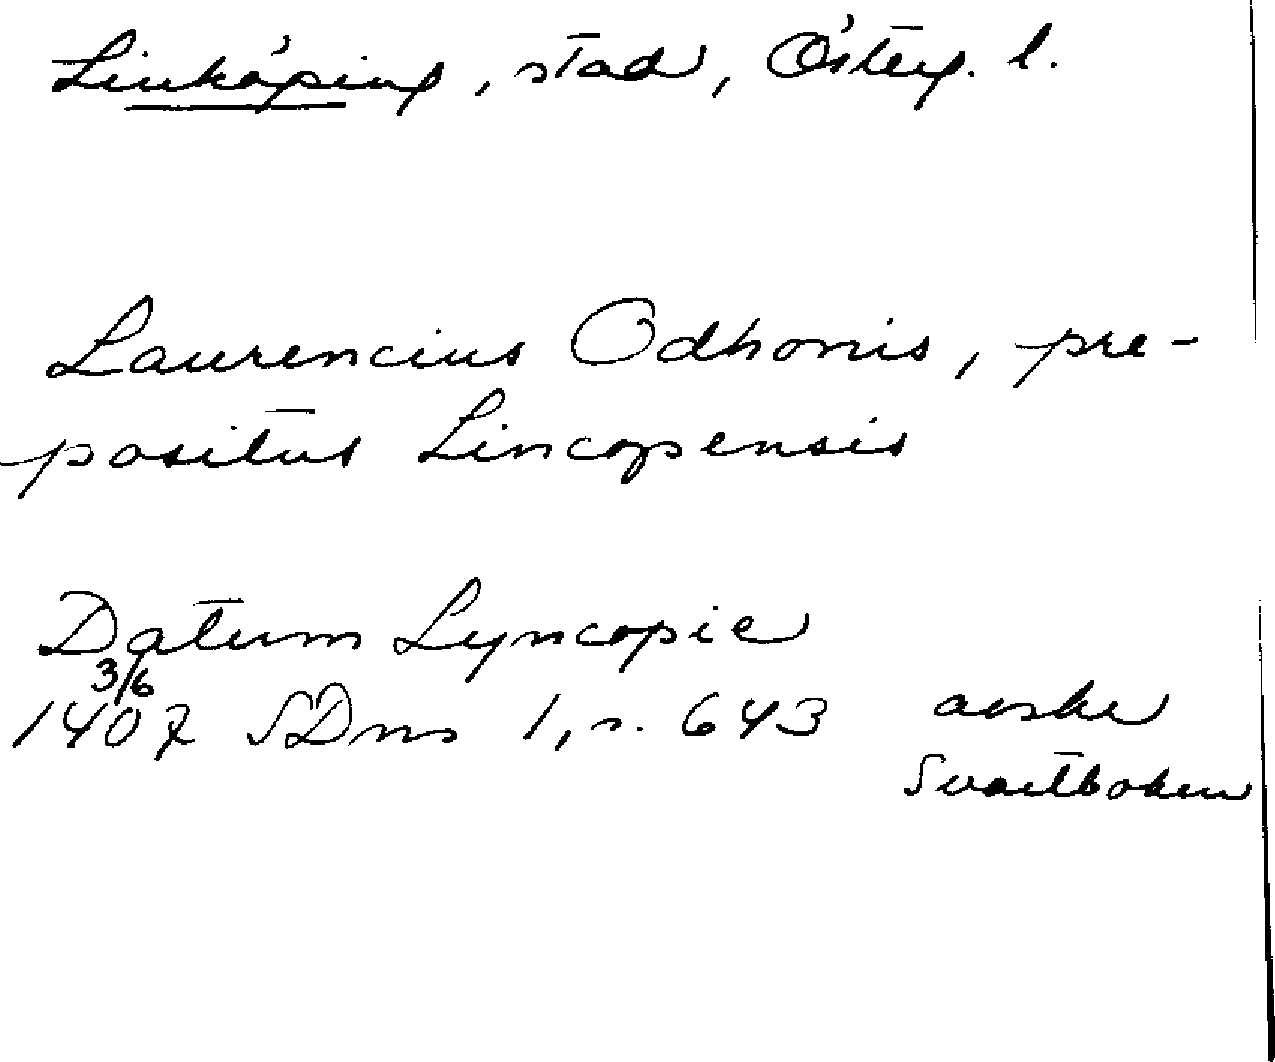 Linköping, stad, Österg. l.
Laurencius Odhonis, pre-
positus Lincopensis
Datum Lyncopie
3/6
1407 SDns 1, s. 643 avskr
Svartboken